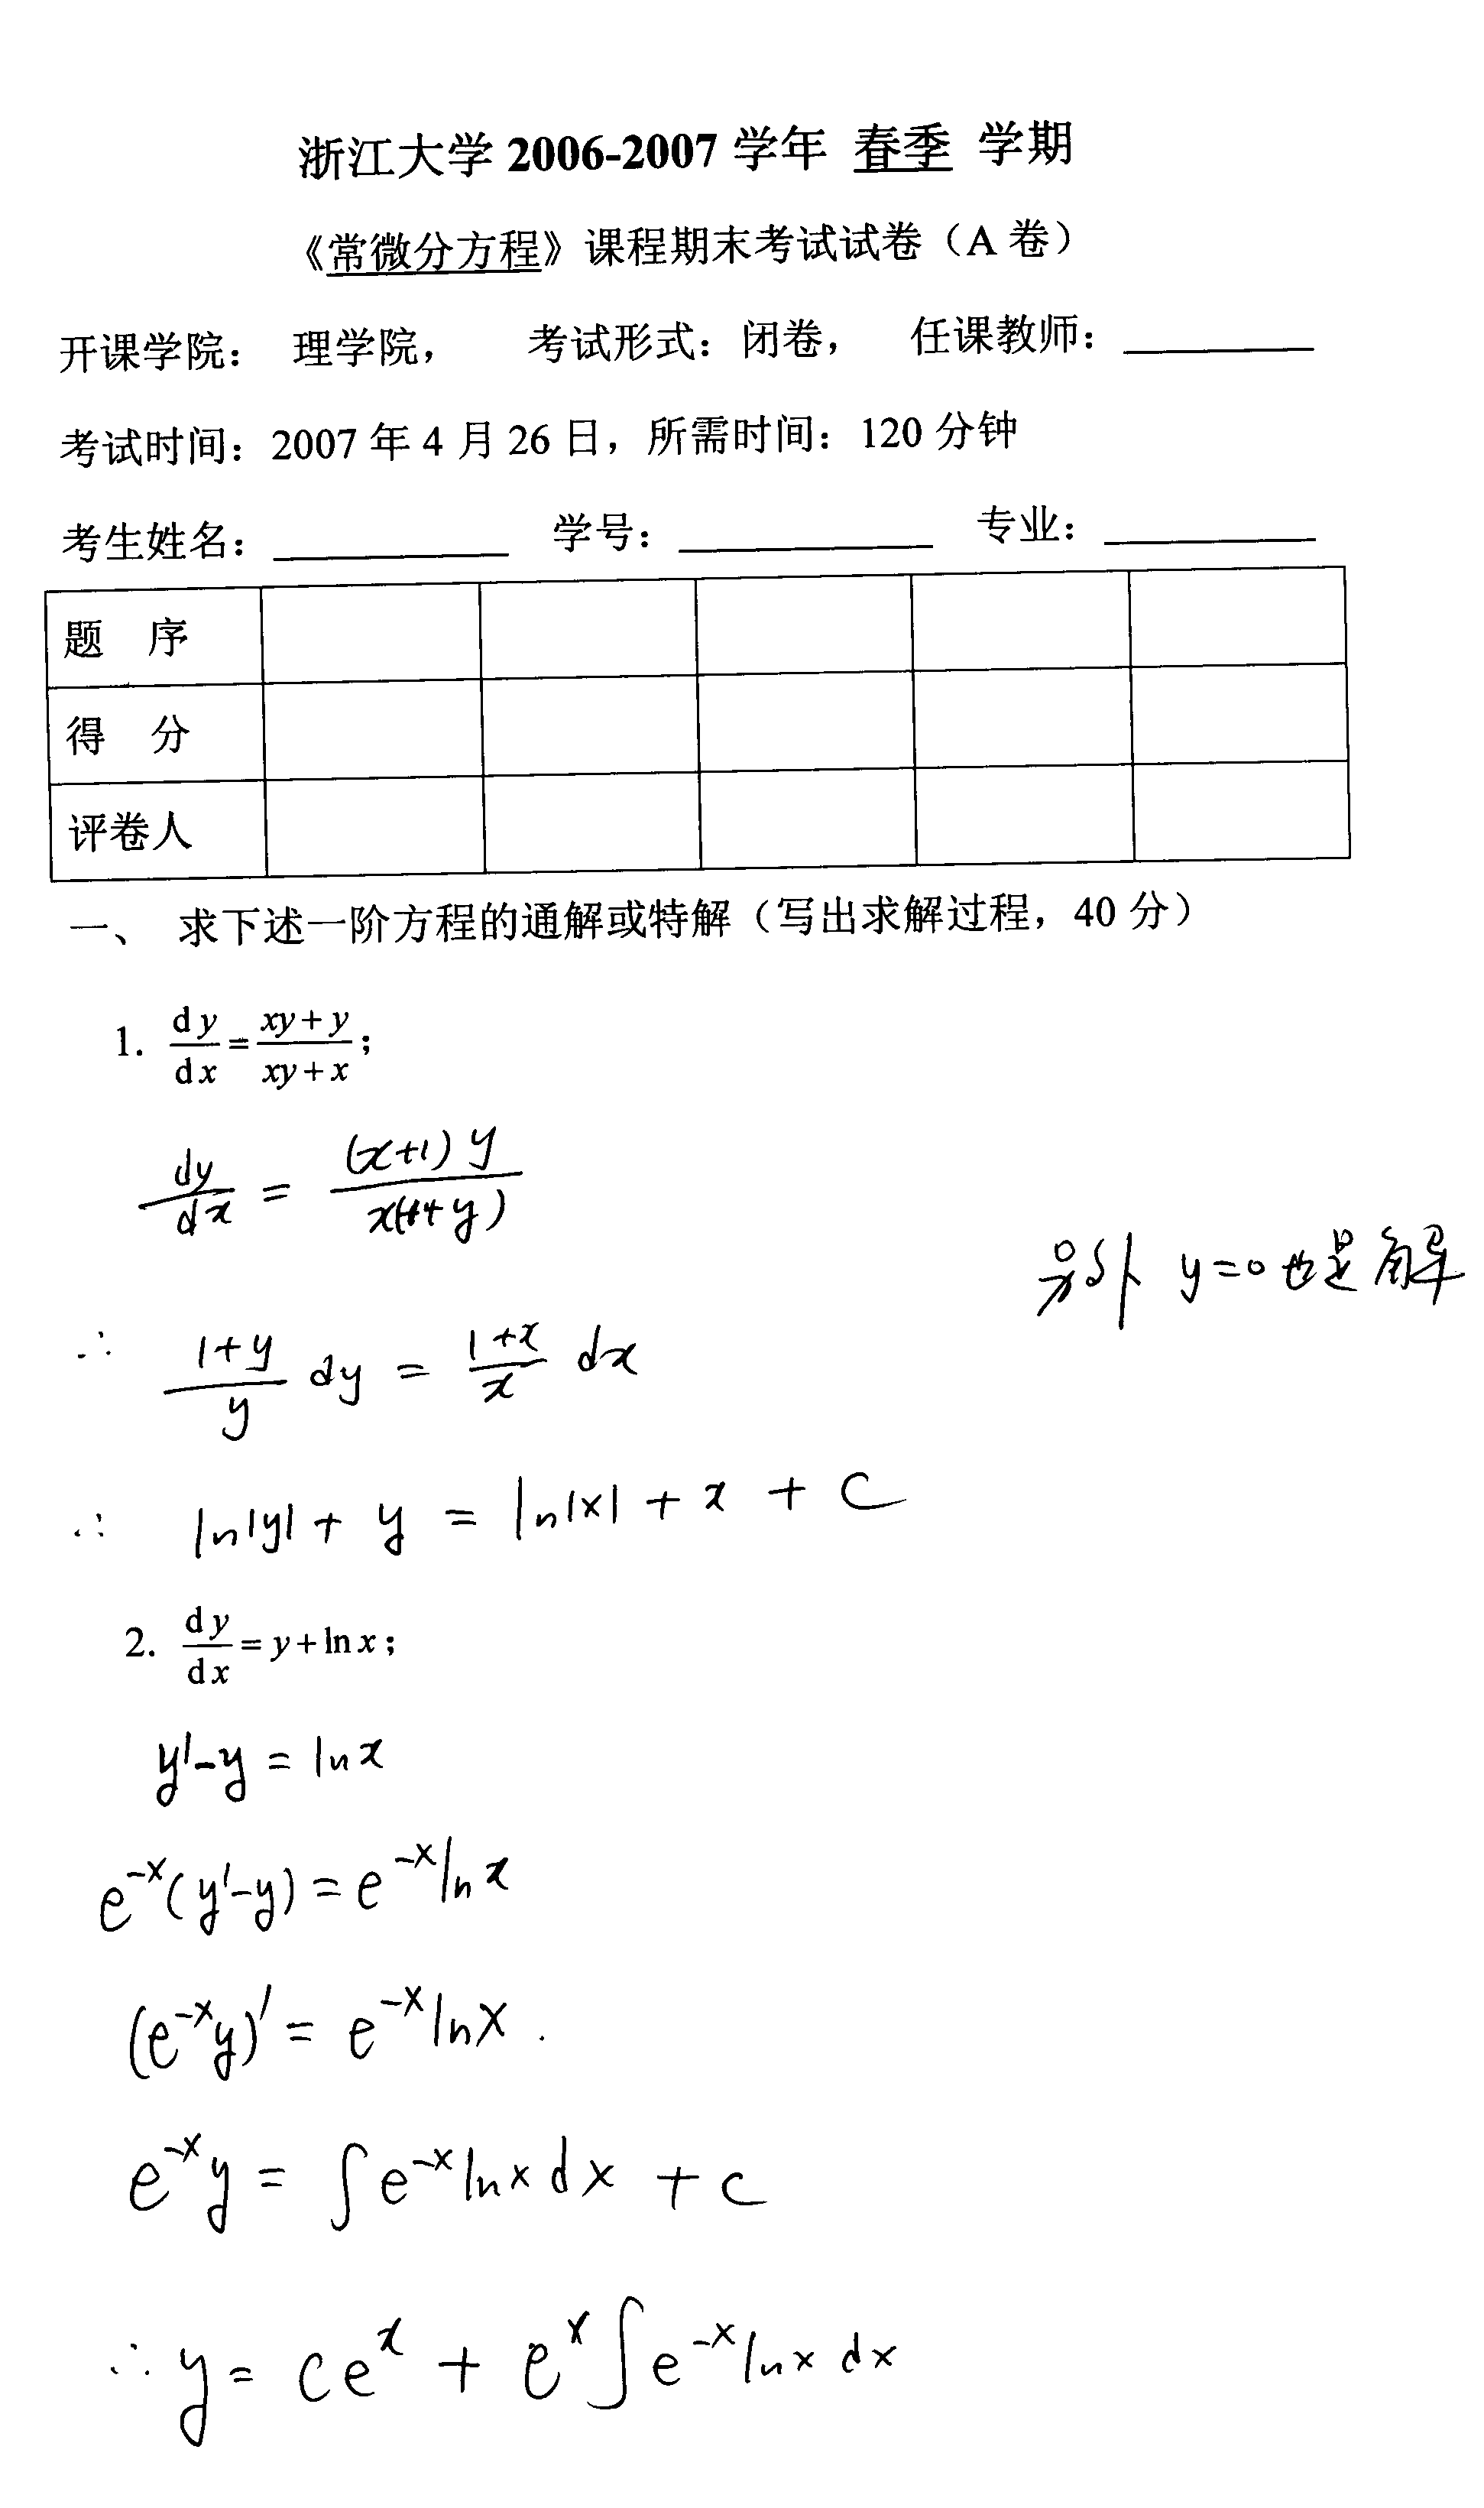 浙江大学 2006-2007 学年 春季 学期
《常微分方程》课程期末考试试卷（A 卷）
开课学院： 理学院， 考试形式：闭卷， 任课教师：
考试时间：2007 年 4 月 26 日，所需时间：120 分钟
考生姓名： 学号： 专业：
题 序
得 分
评卷人
一、 求下述一阶方程的通解或特解（写出求解过程，40 分）
1. dy/dx = (xy+y)/(xy+x)；
dy/dx = (x+1)y / x(1+y)
另外 y=0也是解
∴ (1+y)/y dy = (1+x)/x dx
∴ ln|y| + y = ln|x| + x + C
2. dy/dx = y + ln x；
y'-y = ln x
e^{-x}(y'-y) = e^{-x} ln x
(e^{-x}y)' = e^{-x} ln x .
e^{-x}y = ∫e^{-x} ln x dx + c
∴ y = ce^x + e^x ∫e^{-x} ln x dx